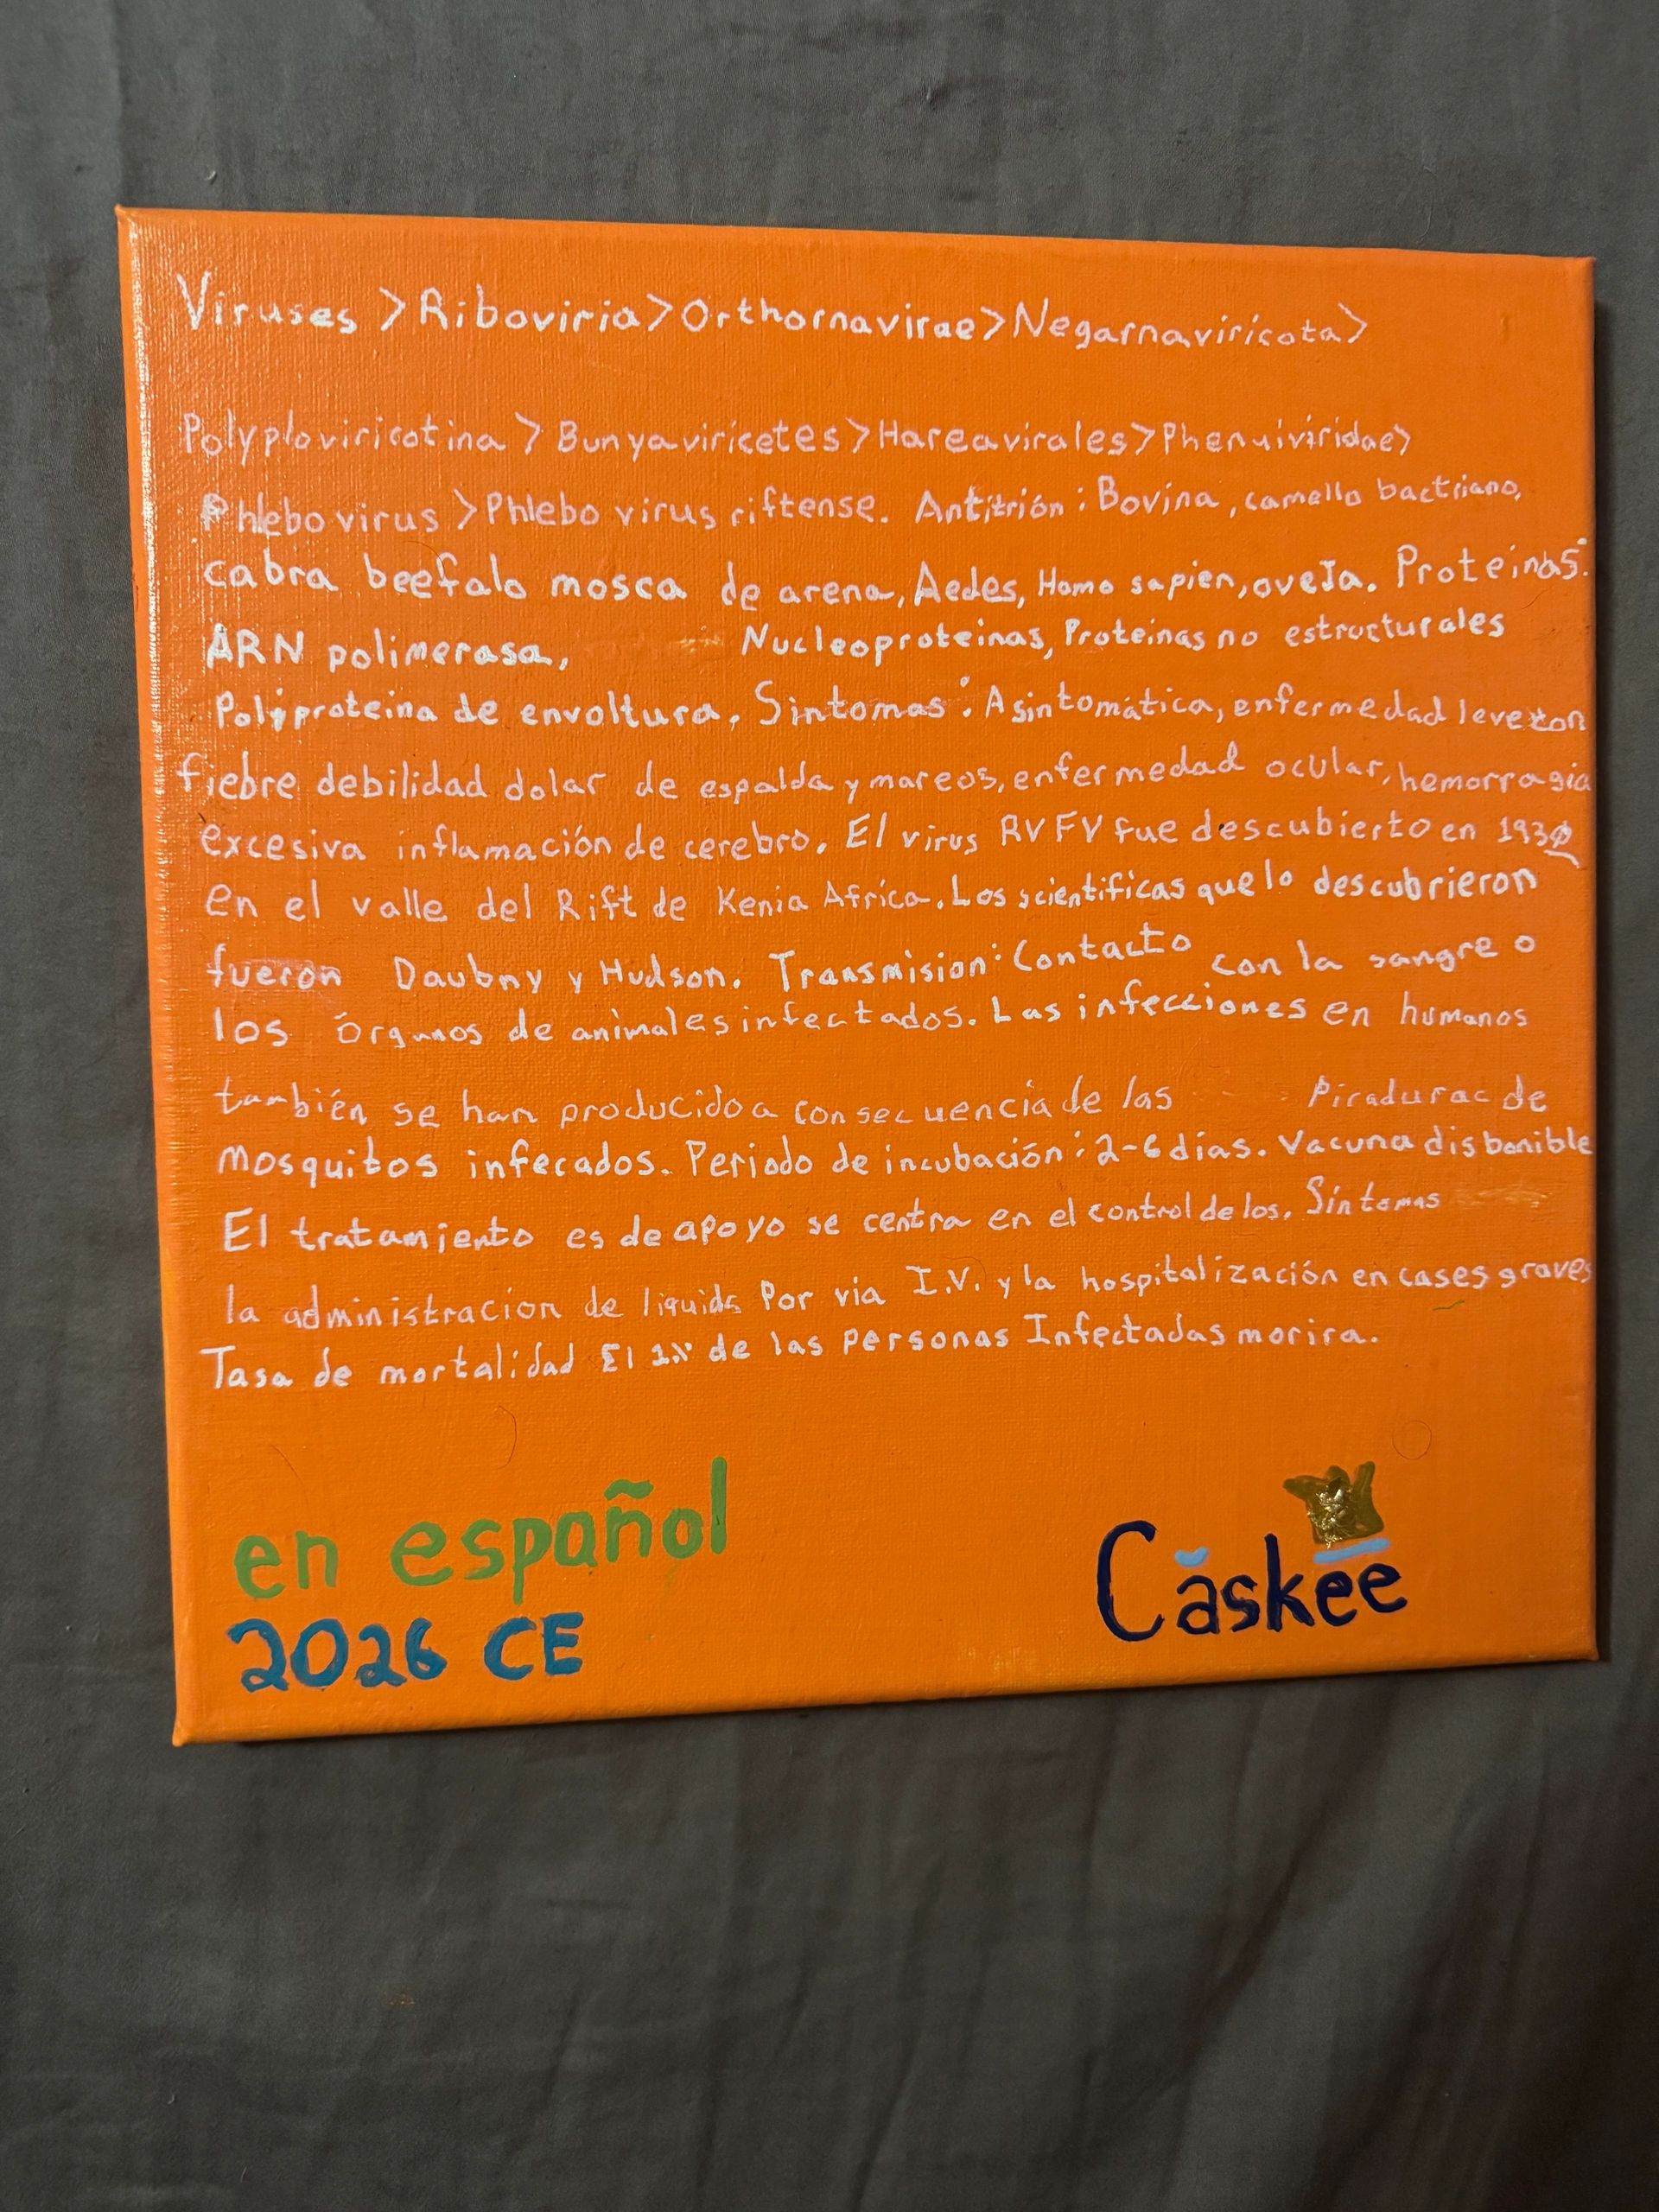 Viruses >Riboviria>Orthornavirae>Negarnaviricota>
Polyploviricotina > Bunyaviricetes>Hareavirales>Phenuiviridae>
Phlebovirus >Phlebo virus riftense. Antitrión: Bovina, camello bactriano,
cabra beefalo mosca de arena, Aedes, Homo sapien, oveja. Proteínas:
ARN polimerasa, Nucleoproteinas, Proteinas no estructurales
Poliproteina de envoltura, Sintomas: Asintomática, enfermedad leve con
fiebre debilidad dolar de espalda y mareos, enfermedad ocular, hemorragia
excesiva inflamación de cerebro. El virus RVFV fue descubierto en 1930
en el valle del Rift de Kenia Africa. Los scientificas que lo descubrieron
fueron Daubny y Hudson. Transmision: Contacto con la sangre o
los órganos de animales infectados. Las infecciones en humanos
también se han producido a consecuencia de las Picadurac de
mosquitos infecados. Periodo de incubación: 2-6 días. Vacuna disbonible
El tratamiento es de apoyo se centra en el control de los. Síntomas
la administracion de liquids Por via I.V. y la hospitalización en cases graves
Tasa de mortalidad El 1% de las personas Infectadas morira.
en español
2026 CE
Căskēē